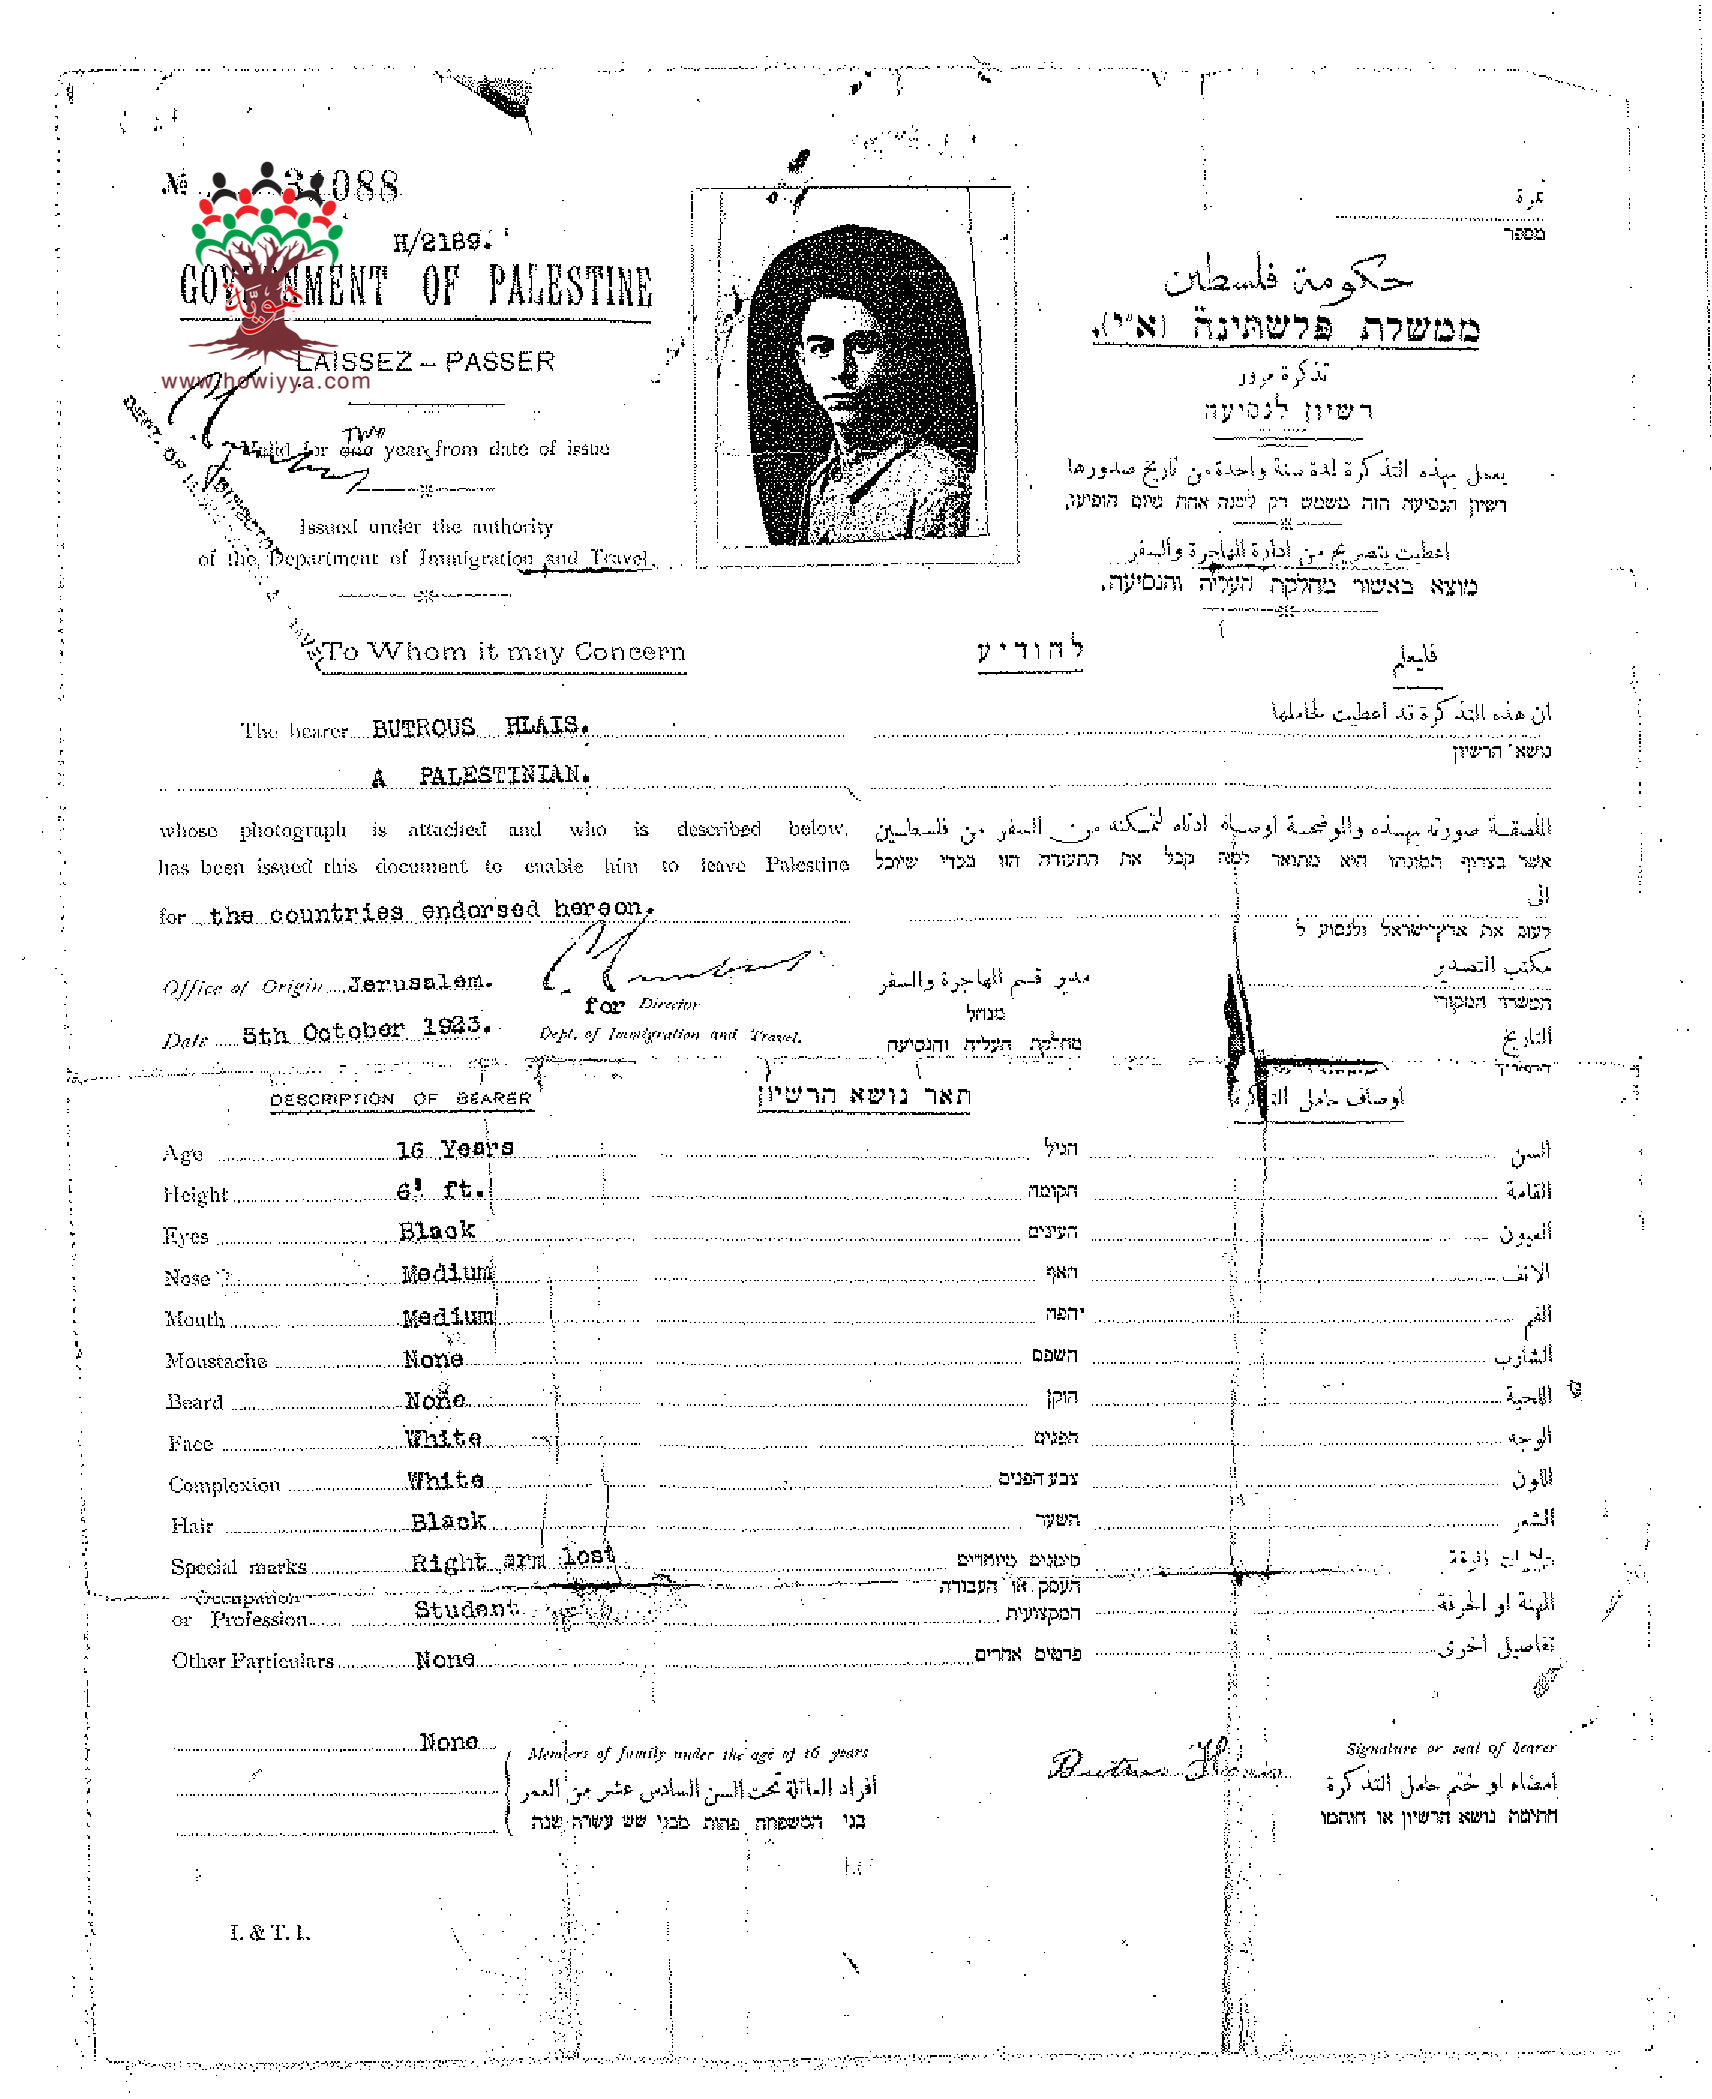 № 31088
H/2189.
GOVERNMENT OF PALESTINE
هوية
LAISSEZ - PASSER
www.howiyya.com
Valid for one two year from date of issue
Issued under the authority
of the Department of Immigration and Travel.
DEPT. OF
DIRECTOR
TRAVEL
نمرة
מספר
حكومة فلسطين
ממשלת פלשתינה (א״י).
تذكرة مرور
רשיון לנסיעה
يعمل بهذه التذكرة لمدة سنة واحدة من تاريخ صدورها
רשיון הנסיעה הזה משמש רק לשנה אחת מיום הופיעו.
اعطيت بتصريح من ادارة المهاجرة والسفر
מוצא באשור מחלקת העליה והנסיעה.
To Whom it may Concern
להודיע
فليعلم
The bearer BUTROUS HLAIS.
A PALESTINIAN.
ان هذه التذكرة قد اعطيت لحاملها
נושא הרשיון
whose photograph is attached and who is described below,
has been issued this document to enable him to leave Palestine
for the countries endorsed hereon.
الملصقة صورته بهذه والموضحة اوصافه ادناه لتمكنه من السفر من فلسطين
אשר בצרוף תמונתו הוא מתואר למטה קבל את התעודה הזו בכדי שיוכל
الى
לעזוב את ארץ־ישראל ולנסוע ל
Office of Origin Jerusalem.
Date 5th October 1923.
for Director
Dept. of Immigration and Travel.
مدير قسم المهاجرة والسفر
מנהל
מחלקת העליה והנסיעה
مكتب التصدير
המשרד המקורי
التاريخ
DESCRIPTION OF BEARER
תאר נושא הרשיון
اوصاف حامل التذكرة
Age 16 Years הגיל السن
Height 6' ft. הקומה القامة
Eyes Black העינים العيون
Nose Medium האף الانف
Mouth Medium הפה الفم
Moustache None השפם الشارب
Beard None הזקן اللحية
Face White הפנים الوجه
Complexion White צבע הפנים اللون
Hair Black השער الشعر
Special marks Right arm lost סימנים מיוחדים
Occupation העסק או העבודה
or Profession Student המקצועית المهنة او الحرفة
Other Particulars None פרטים אחרים تفاصيل اخرى
None
Members of family under the age of 16 years
افراد العائلة تحت السن السادس عشر من العمر
בני המשפחה פחות מבני שש עשרה שנה
Butrus Hlais
Signature or seal of bearer
امضاء او ختم حامل التذكرة
חתימת נושא הרשיון או חותמו
I. & T. 1.